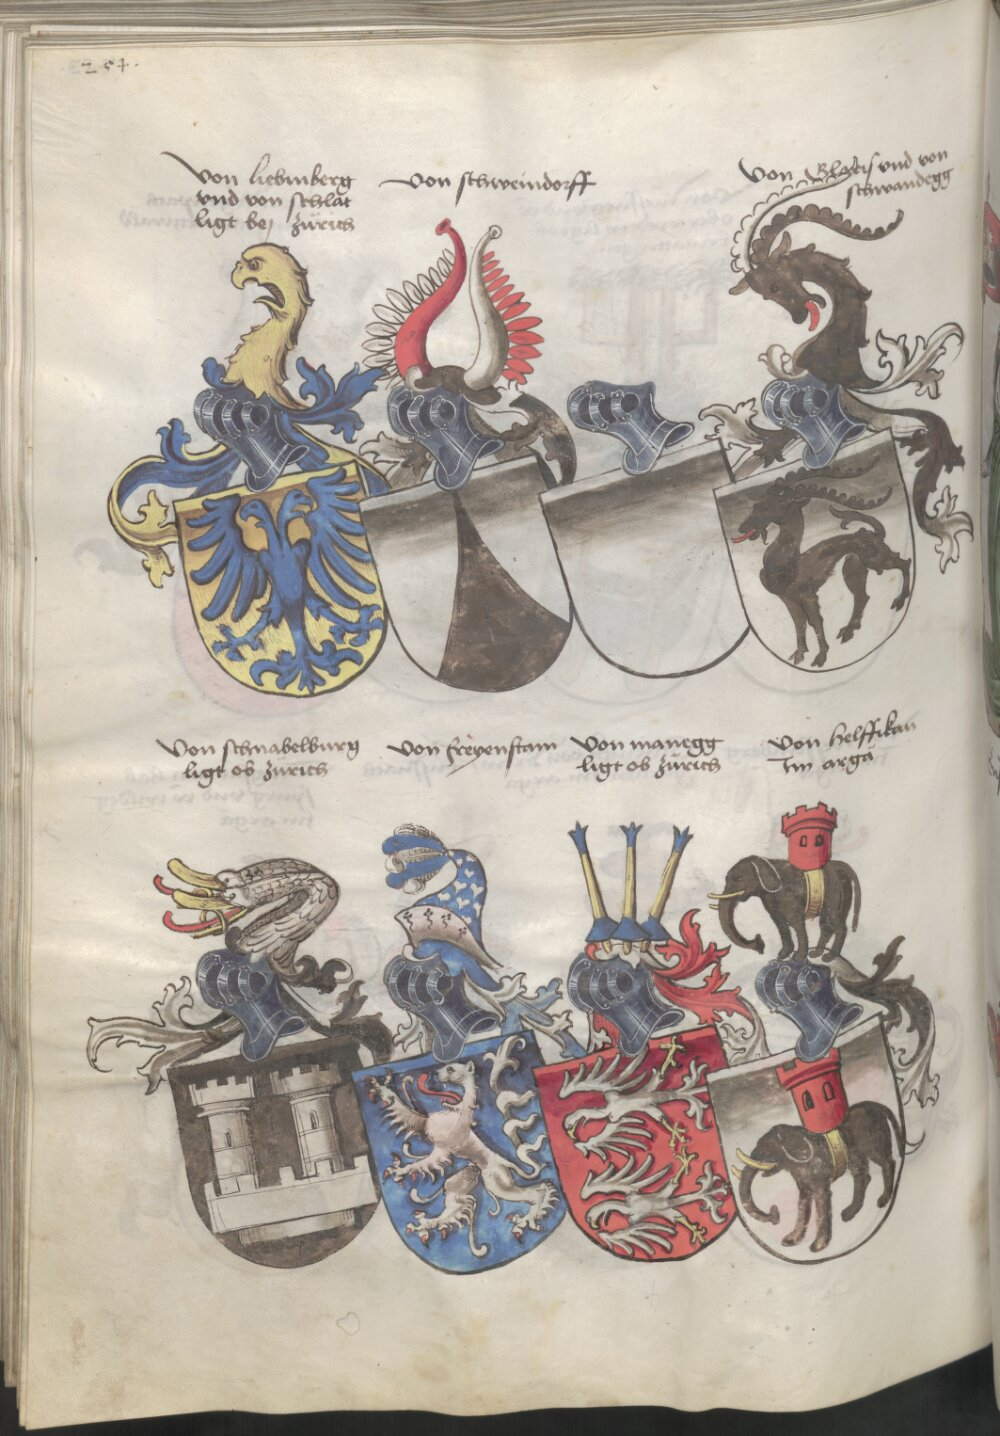 254.
von liebinberg
vnd von schlat
ligt bej zürich
von schweindorff
von vnd von
schwandegg
von schnabelburg
ligt ob zürich
von freyenstain
von manegg
ligt ob zürich
von helffikan
Im argä